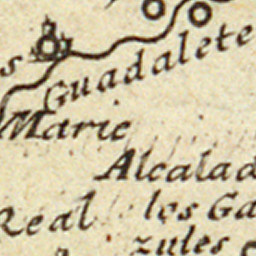 s
Guadalete
Marie
Alcalad
Real los Ga
zules